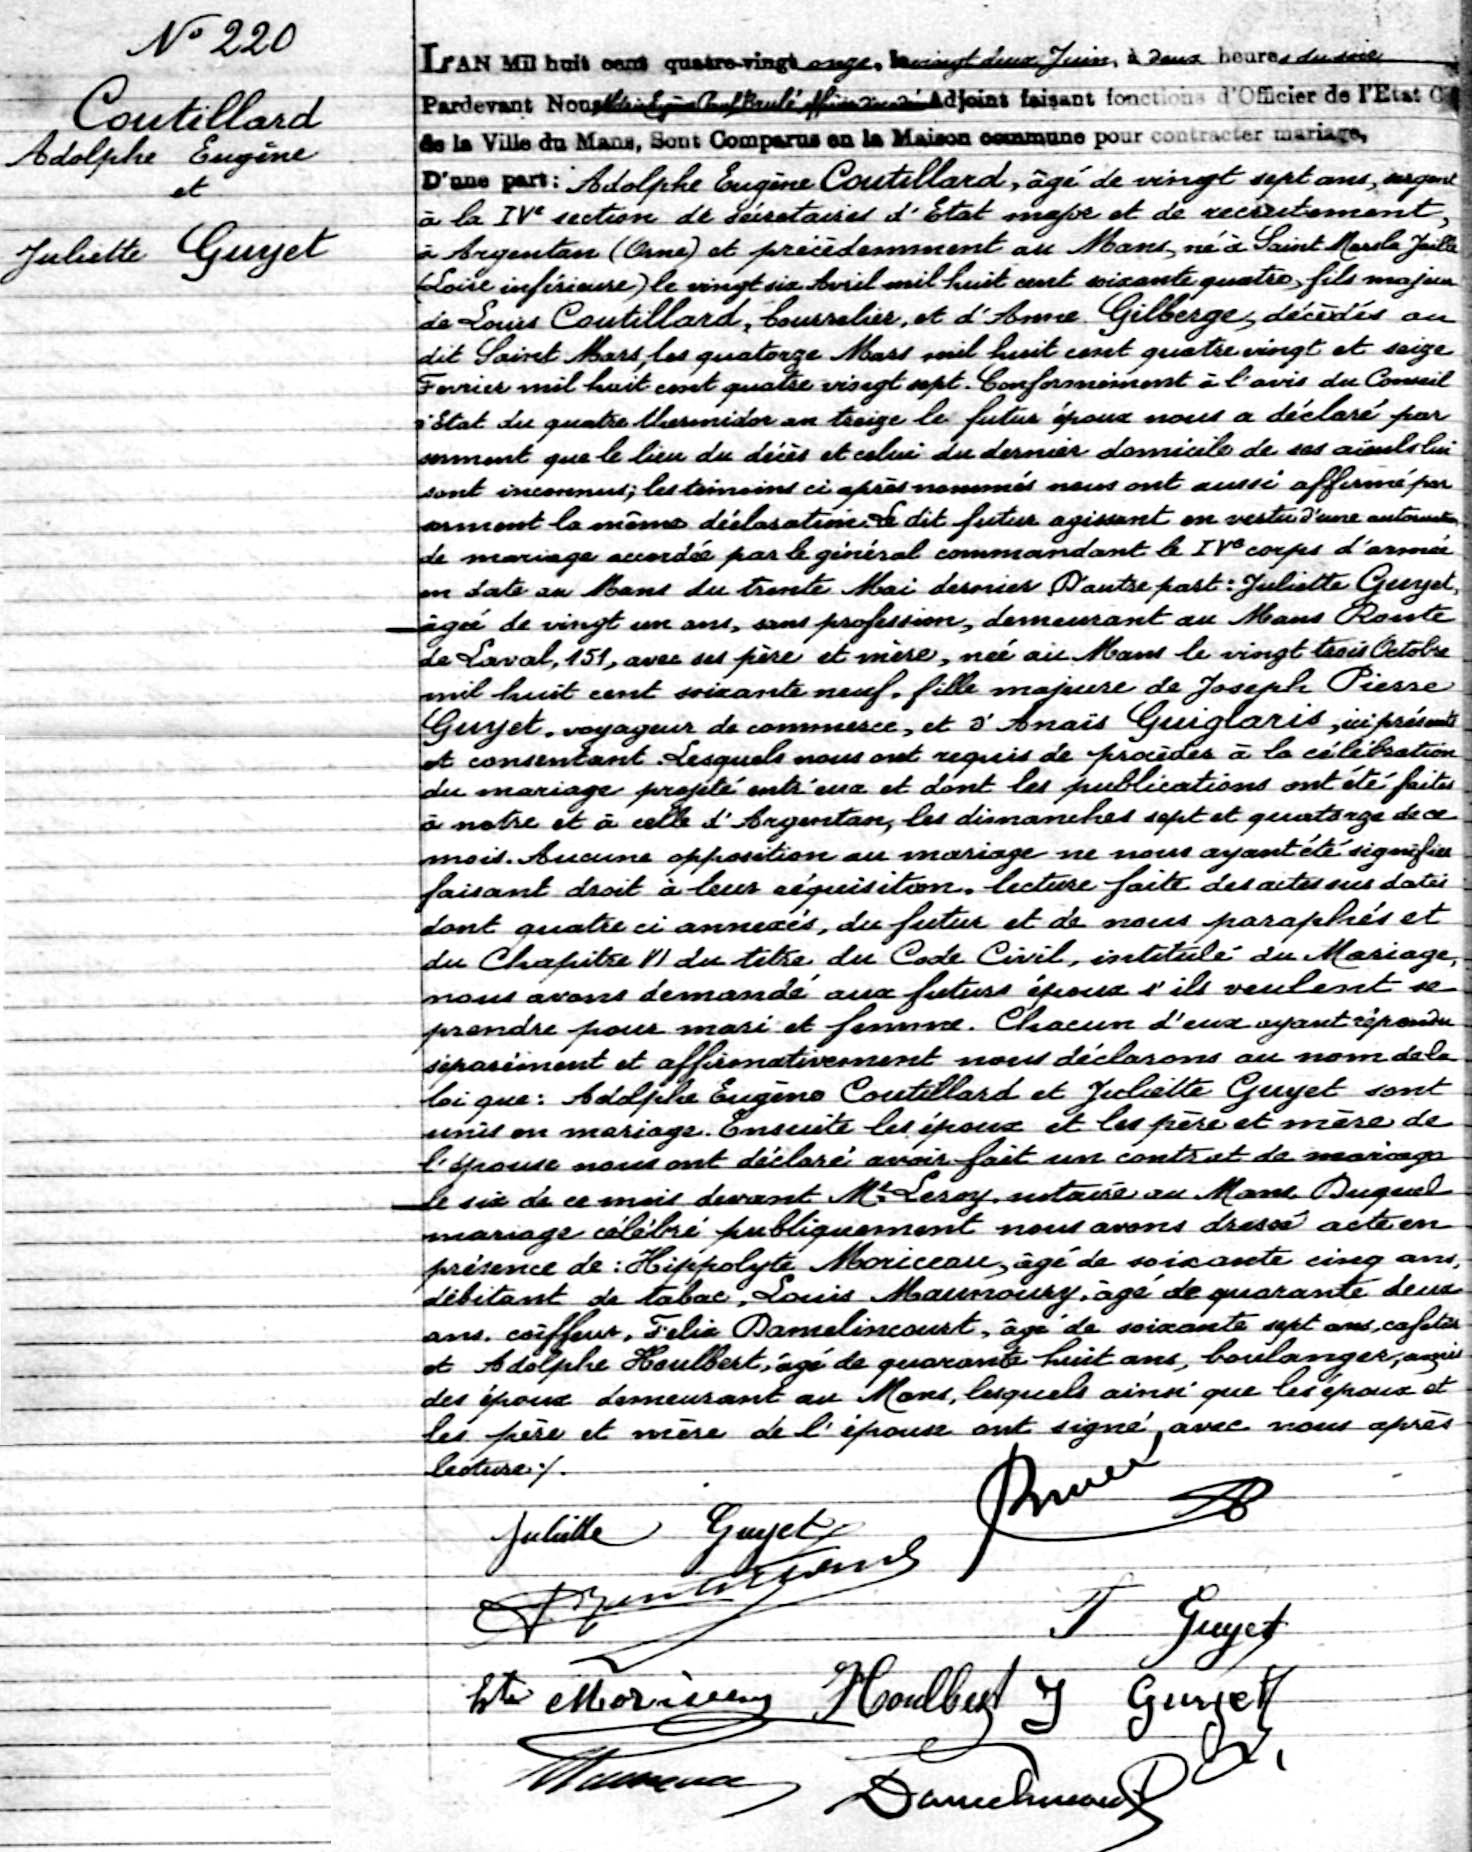 N° 220
Coutillard
Adolphe Eugène
et
Juliette Guyet
L'AN Mil huit cent quatre-vingt onze, le vingt deux Juin, à deux heures du soir
Pardevant Nous Adjoint faisant fonctions d'Officier de l'Etat C
de la Ville du Mans, Sont Comparus en la Maison commune pour contracter mariage,
D'une part : Adolphe Eugène Coutillard, âgé de vingt sept ans, sergent
à la IVe section de secrétaires d'Etat major et de recrutement,
à Argentan (Orne) et précédemment au Mans, né à Saint Mars la Jaille
(Loire inférieure) le vingt six Avril mil huit cent soixante quatre, fils majeur
de Louis Coutillard, bourrelier, et d'Anne Gilberge, décédés au
dit Saint Mars, les quatorze Mars mil huit cent quatre vingt et seize
Fevrier mil huit cent quatre vingt sept. Conformément à l'avis du Conseil
d'Etat du quatre thermidor an treize le futur époux nous a déclaré par
serment que le lieu du décès et celui du dernier domicile de ses aïeuls lui
sont inconnus; les témoins ci après nommés nous ont aussi affirmé par
serment la même déclaration. Le dit futur agissant en vertu d'une autorisation
de mariage accordée par le général commandant le IVe corps d'armée
en date au Mans du trente Mai dernier D'autre part : Juliette Guyet,
âgée de vingt un ans, sans profession, demeurant au Mans Route
de Laval, 151, avec ses père et mère, née au Mans le vingt trois Octobre
mil huit cent soixante neuf, fille majeure de Joseph Pierre
Guyet, voyageur de commerce, et d'Anaïs Guiglaris, ici présents
et consentant. Lesquels nous ont requis de procéder à la célébration
du mariage projeté entr'eux et dont les publications ont été faites
à notre et à celle d'Argentan, les dimanches sept et quatorze de ce
mois. Aucune opposition au mariage ne nous ayant été signifiée
faisant droit à leur réquisition, lecture faite des actes sus datés
dont quatre ci annexés, du futur et de nous paraphés et
du Chapitre VI du titre du Code Civil, intitulé du Mariage,
nous avons demandé aux futurs époux s'ils veulent se
prendre pour mari et femme. Chacun d'eux ayant répondu
séparément et affirmativement nous déclarons au nom de la
loi que : Adolphe Eugène Coutillard et Juliette Guyet sont
unis en mariage. Ensuite les époux et les père et mère de
l'épouse nous ont déclaré avoir fait un contrat de mariage
le six de ce mois devant Me Leroy, notaire au Mans Duquel
mariage célébré publiquement nous avons dressé acte en
présence de : Hippolyte Moriceau, âgé de soixante cinq ans,
débitant de tabac, Louis Maunoury, âgé de quarante deux
ans, coiffeur, Felix Damelincourt, âgé de soixante sept ans, cafetier
et Adolphe Houlbert, âgé de quarante huit ans, boulanger, amis
des époux demeurant au Mans, lesquels ainsi que les époux et
les père et mère de l'épouse ont signé, avec nous après
lecture ./.
Juliette Guyet
T Guyet
Hte Moriceau Houlbert J Guyet
Damelincourt